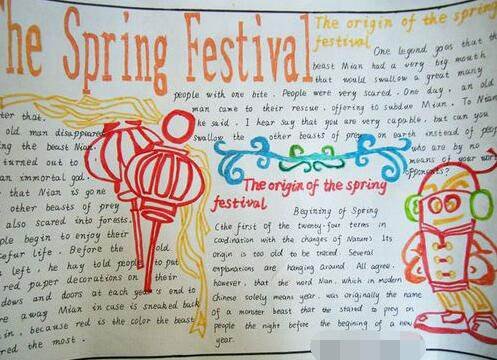 he Spring Festival
The origin of the spring
festival
One legend goes that th
beast Nian had a very big mouth
that would swallow a great many
people with one bite. People were very scared. One day, an old
man came to their rescue, offering to subdue Nian. To Nian
he said, I hear say that you are very capable, but can you
swallow the other beasts of prey on earth instead of peop
who are by no
means of your wor
opponents?
ter that,
old man disappeared
ing the beast Nian.
turned out to
an immortal god.
that Nian is gone
other beasts of prey
also scared into forests.
ple begin to enjoy their
ceful life. Before the old
left, he hay told people to put
red paper decorations on their
dows and doors at each year's end to
re away Mian in case is sneaked back
in, because red is the color the beast
red the most.
The origin of the spring
festival
Beginning of Spring
(the first of the twenty-four terms in
Coordination with the changes of Nature) Its
origin is too old to be traced. Several
explanations are hanging around. All agree,
however, that the word Nian, which in modern
Chinese solely means year, was originally the name
of a monster beast that the stared to prey on
people the night before the begining of a new
year.